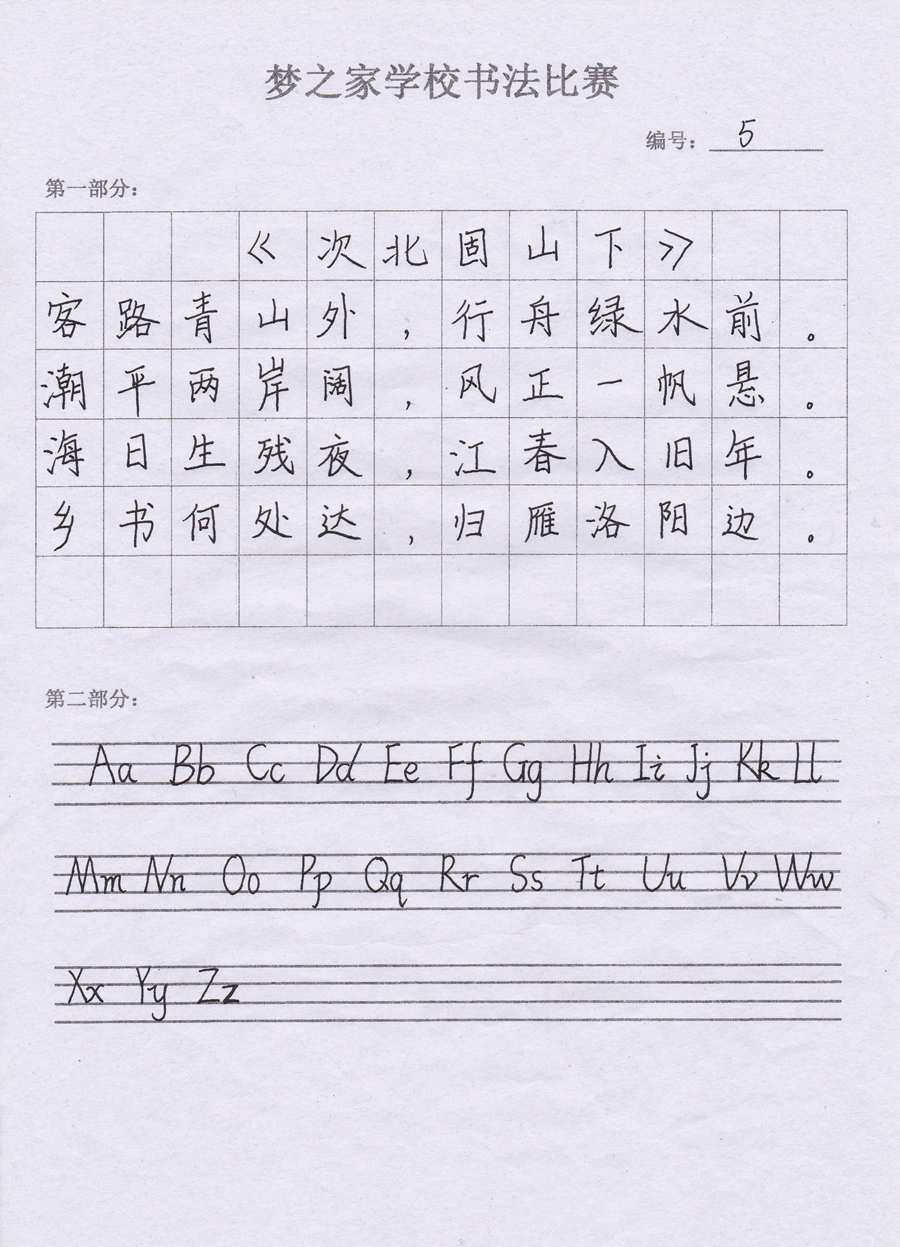 梦之家学校书法比赛
编号： 5
第一部分：
《次北固山下》
客路青山外，行舟绿水前。
潮平两岸阔，风正一帆悬。
海日生残夜，江春入旧年。
乡书何处达，归雁洛阳边。
第二部分：
Aa Bb Cc Dd Ee Ff Gg Hh Ii Jj Kk Ll
Mm Nn Oo Pp Qq Rr Ss Tt Uu Vv Ww
Xx Yy Zz